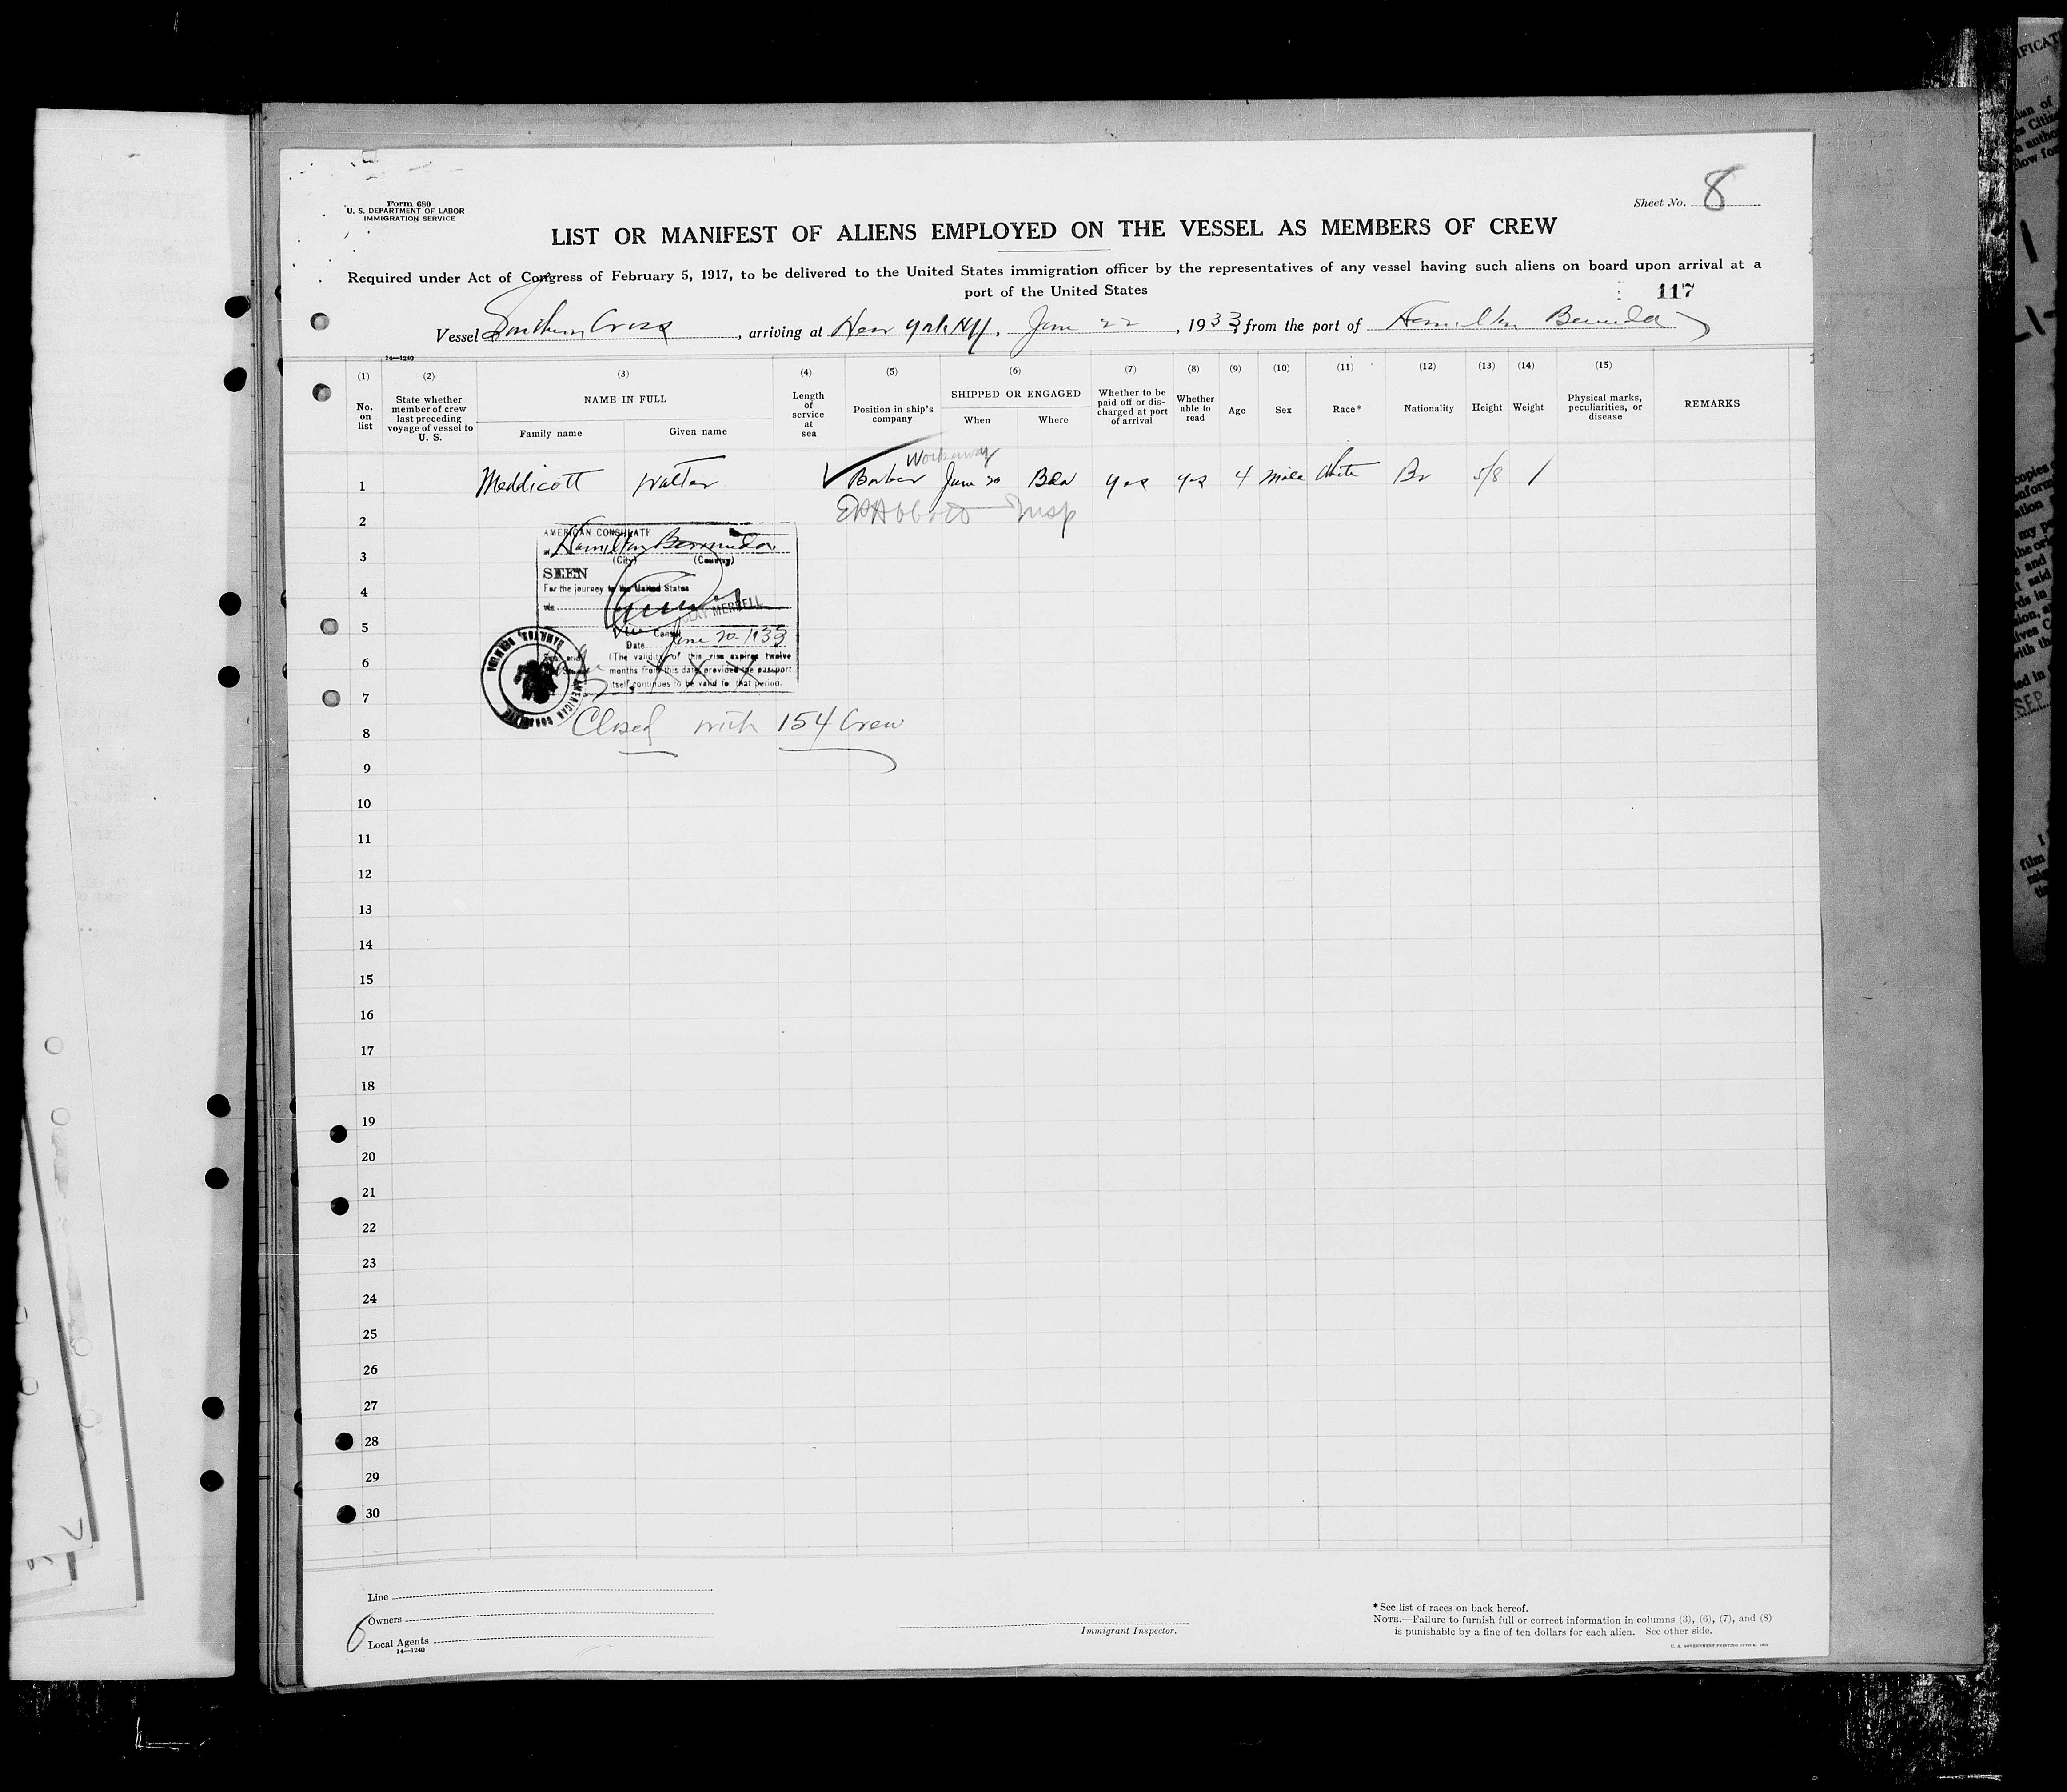 Form 680
U. S. DEPARTMENT OF LABOR
IMMIGRATION SERVICE
Sheet No. 8
LIST OR MANIFEST OF ALIENS EMPLOYED ON THE VESSEL AS MEMBERS OF CREW
Required under Act of Congress of February 5, 1917, to be delivered to the United States immigration officer by the representatives of any vessel having such aliens on board upon arrival at a
port of the United States
117
Vessel Southern Cross, arriving at New York NY, June 22, 1933, from the port of Hamilton Bermuda
14—1240
(1) (2) (3) (4) (5) (6) (7) (8) (9) (10) (11) (12) (13) (14) (15)
No. on list
State whether member of crew last preceding voyage of vessel to U. S.
NAME IN FULL
Family name Given name
Length of service at sea
Position in ship's company
SHIPPED OR ENGAGED
When Where
Whether to be paid off or discharged at port of arrival
Whether able to read
Age
Sex
Race*
Nationality
Height
Weight
Physical marks, peculiarities, or disease
REMARKS
Workaway
1 Meddicott Walter Barber June 20 Bda yes yes 4 Male White Br 5/8 1
2 Insp
AMERICAN CONSULATE
at Hamilton Bermuda
3 (City) (Country)
SEEN
4 For the journey to the United States
via
CLAY MERRELL
5 Vice Consul
Date June 20 1933
6 (The validity of this visa expires twelve
months from this date provided the passport
7 itself continues to be valid for that period.
AMERICAN CONSULATE HAMILTON, BERMUDA
8 Closed with 154 Crew
9
10
11
12
13
14
15
16
17
18
19
20
21
22
23
24
25
26
27
28
29
30
Line
Owners
Local Agents
14—1240
6
Immigrant Inspector.
*See list of races on back hereof.
NOTE.—Failure to furnish full or correct information in columns (3), (6), (7), and (8)
is punishable by a fine of ten dollars for each alien. See other side.